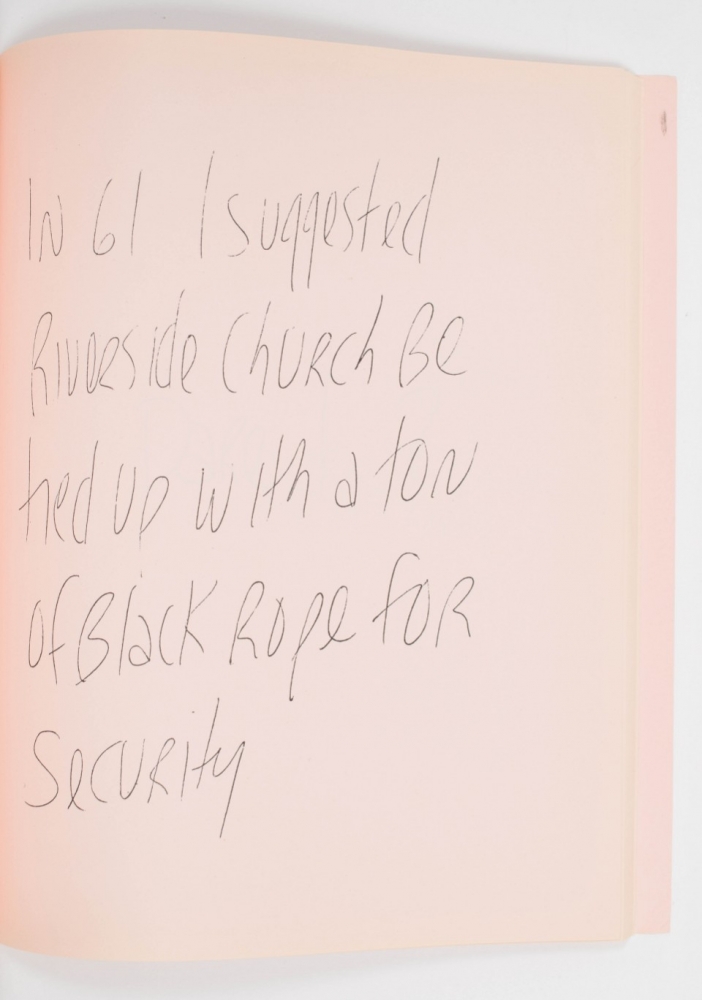 IN 61 I suggested
Riverside Church Be
tied up with a ton
of Black Rope for
Security